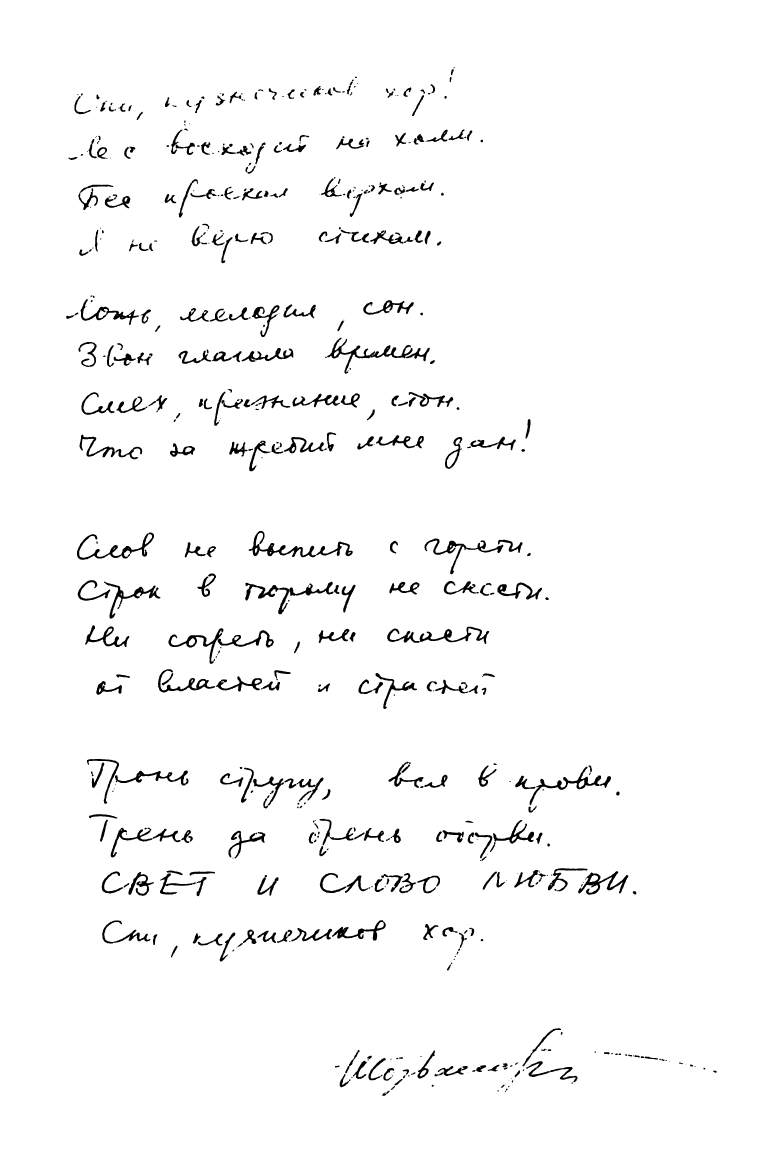 Спи, кузнечиков хор!
Лес восходит на холм.
Бес проехал верхом.
Я не верю стихам.
Ложь, мелодия, сон.
Звон глагола времен.
Смех, признание, стон.
Что за жребий мне дан!
Слов не выпить с горсти.
Строк в тюрьму не снести.
Ни согреть, ни спасти
от властей и страстей
Тронь струну, вся в крови.
Трень да брень оборви.
СВЕТ И СЛОВО ЛЮБВИ.
Спи, кузнечиков хор.